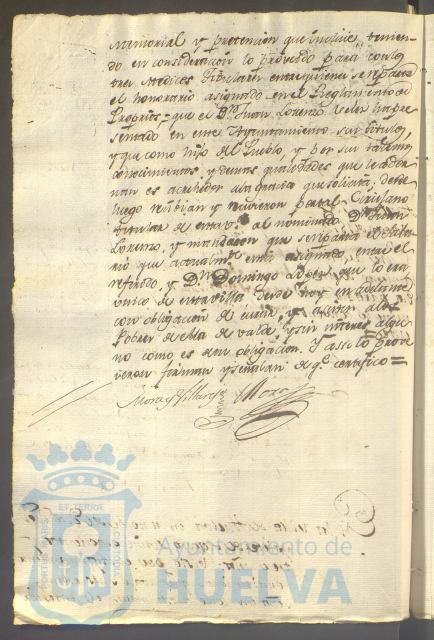 Memorial y pretencion que incluie, tenien-
do en consideración lo proveido para con los
tres Medicos titulares entre quienes se reparte
el honorario asignado en el Reglamento de
Propios = que el Dn. Juan Lorenzo Velez ha pre-
sentado en este Ayuntamiento sus titulos,
y que como hijo del Pueblo, y por sus talentos,
conocimientos, y demas qualidades que le ador-
nan es acrehedor a la gracia que solicita; desde
luego recibian y recivieron por tal Cirujano
titular de esta va. al nominado Dn. Juan
Lorenzo, y mandaron que se reparta el Sala-
rio que actualmte. está asignado, entre el
referido, y Dn. Domingo que lo era
unico de esta villa desde hoy en adelante
con obligacion de curar, y asistir a los
Pobres de ella de valde, y sin interes algu-
no como es de su obligacion. Y assi lo prove
yeron firman y señalan de qe. certifico =
Mora Villarejo Moro
ET TERRÆ
CUSTODIA
PORTUS MARIS
Ayuntamiento de
HUELVA